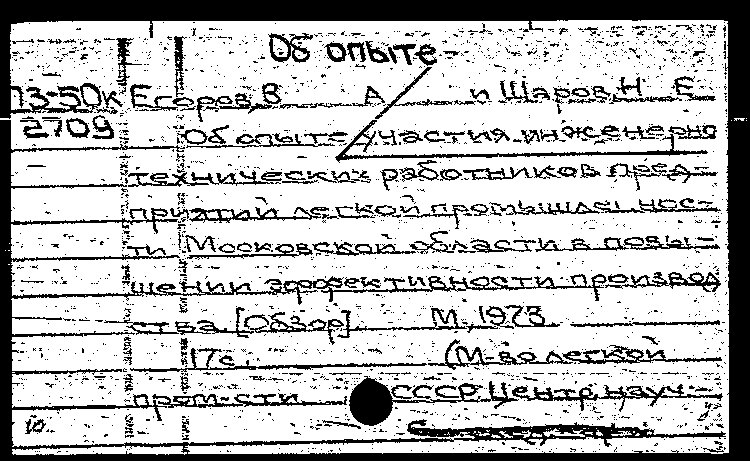 Об опыте-
73-50к Егоров, В А и Шаров, Н Е
2709 Об опыте участия инженерно
технических работников пред-
приятий легкой промышленнос-
ти Московской области в повы-
шении эффективности производ
ства. [Обзор]. М., 1973
17с. (М-во легкой
пром-сти СССР Центр. науч.-